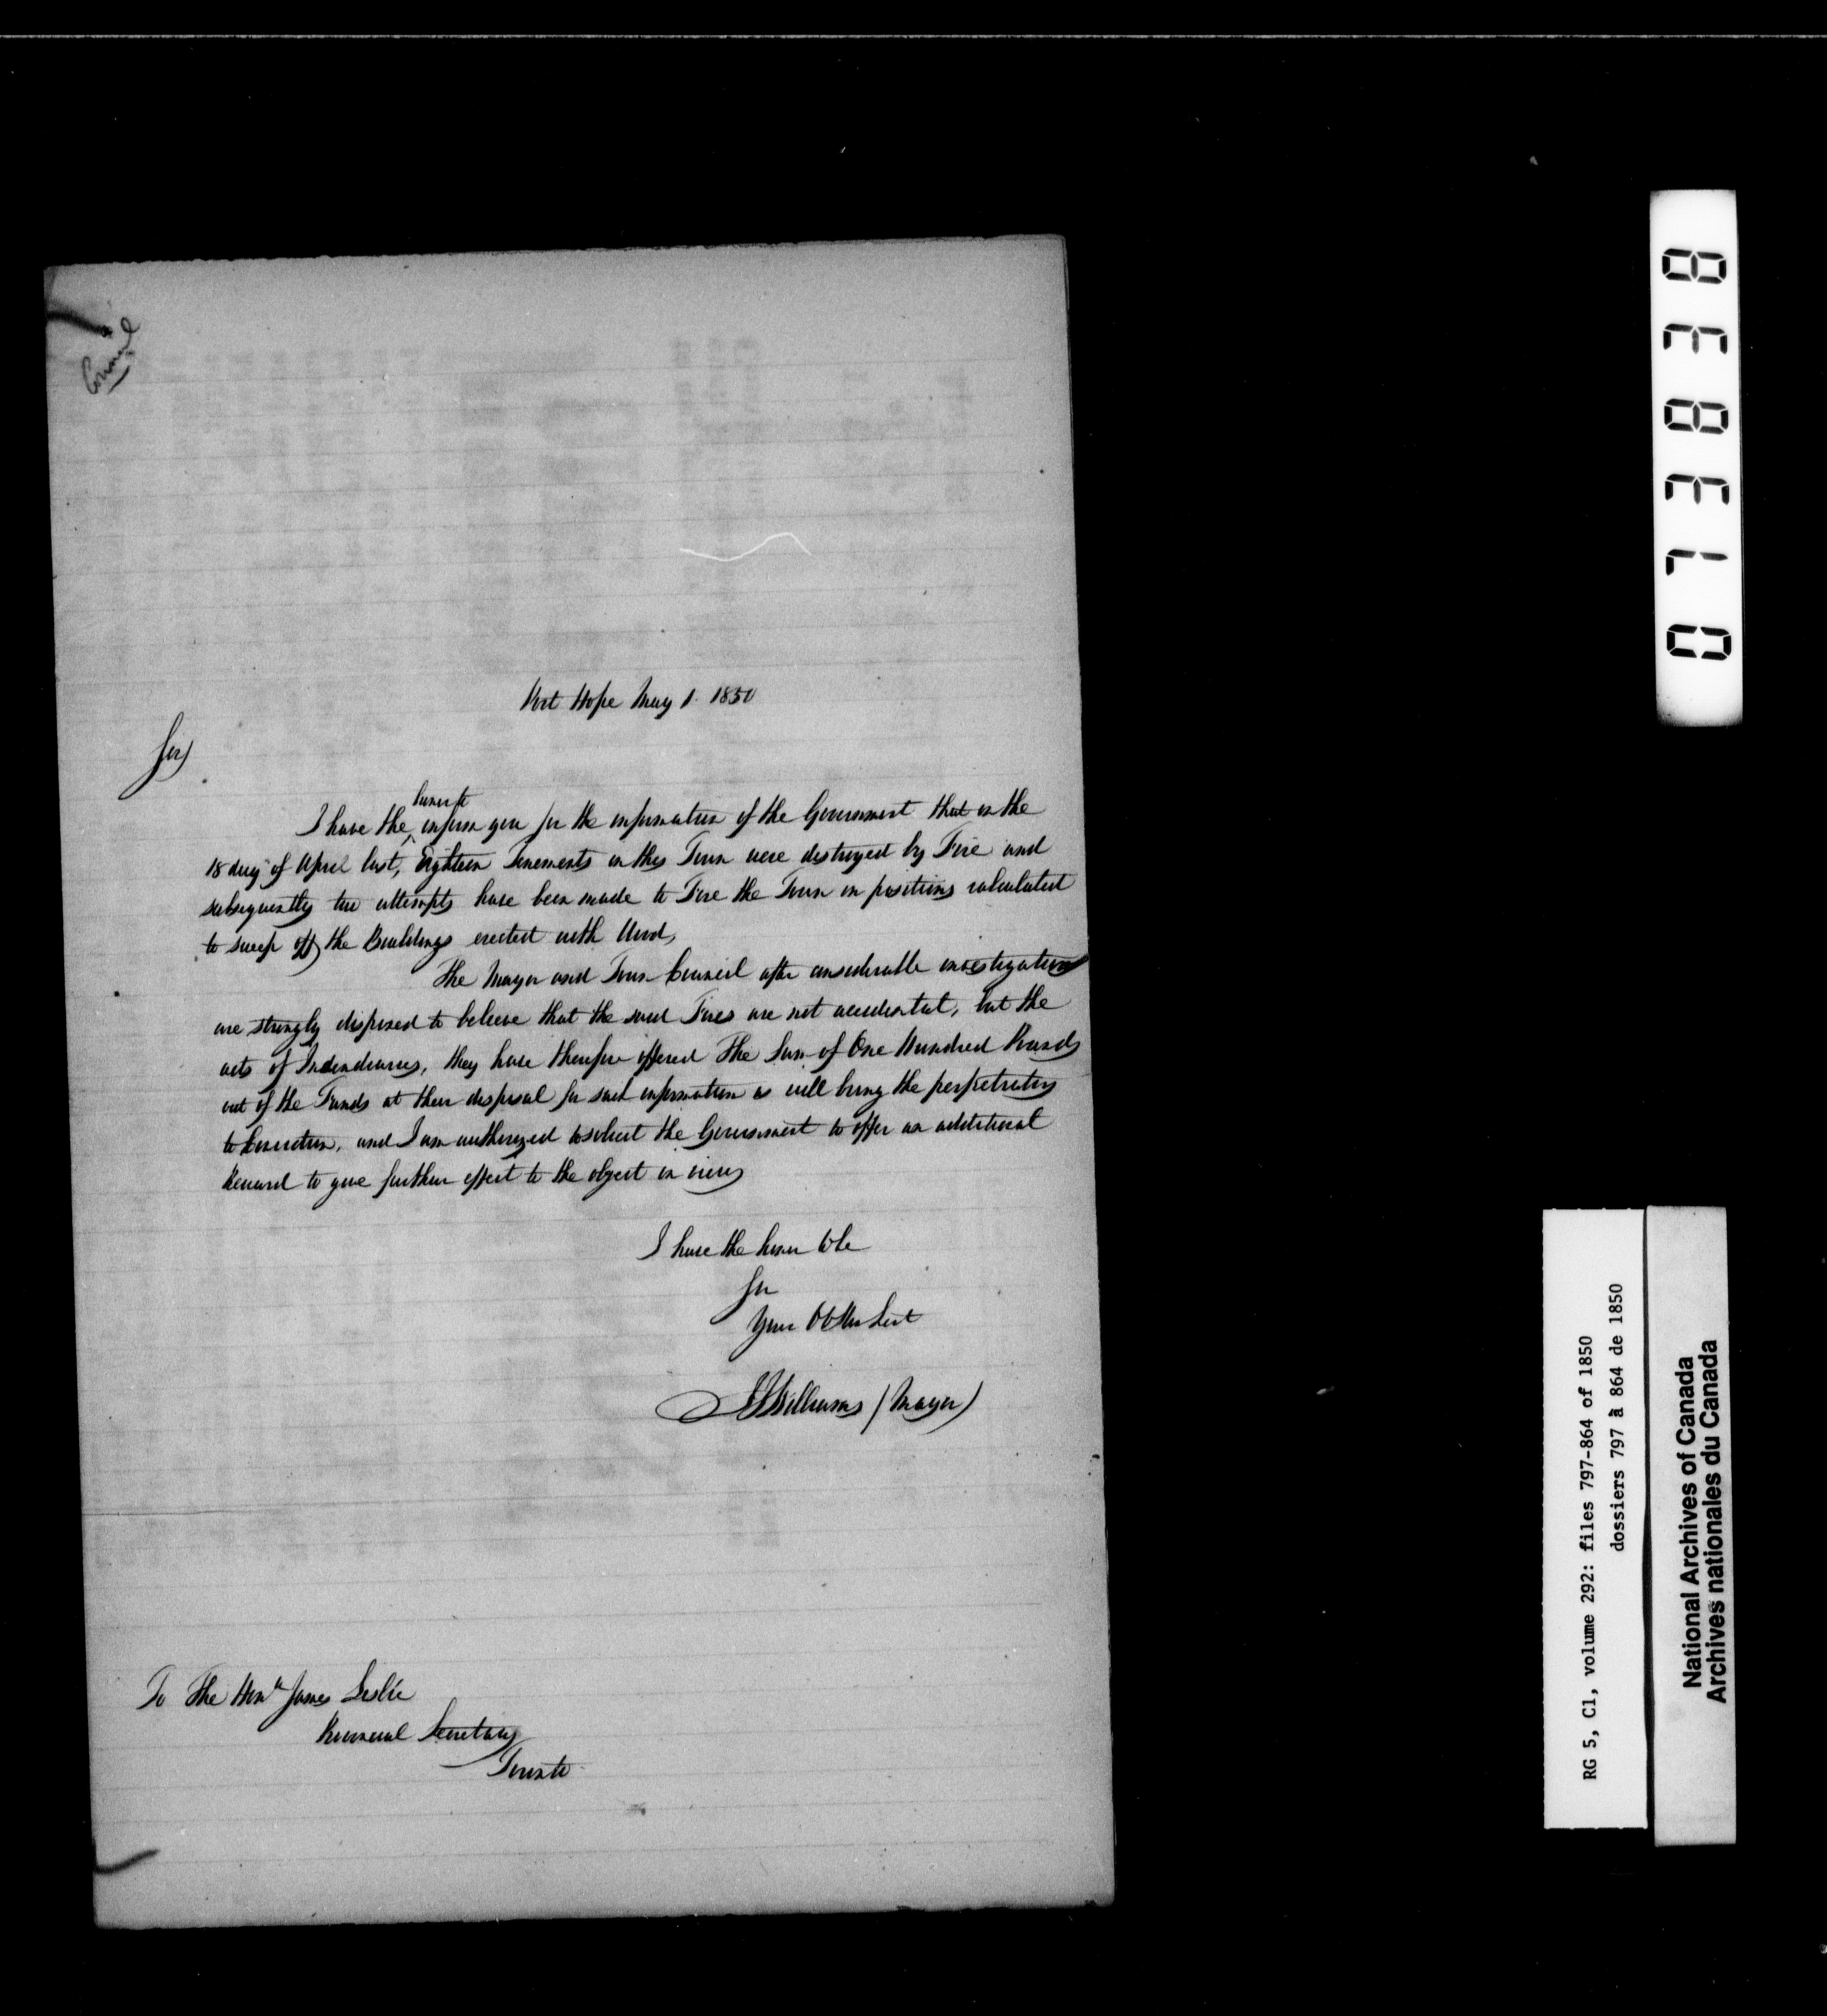 Council
Port Hope May 1. 1850
Sir
honor to
I have the ^ inform you for the information of the Government that on the
18 day of April last, Eighteen Tenements in this Town were destroyed by Fire and
subsequently two attempts have been made to Fire the Town in positions calculated
to sweep off the Buildings erected with Wood,
The Mayor and Town Council after considerable investigation
are strongly disposed to believe that the said Fires are not accidental, but the
acts of Incendiaries, they have therefore offered The Sum of One Hundred Pounds
out of the Funds at their disposal for such information as will bring the perpetrators
to Conviction, and I am authorized to solicit the Government to offer an additional
Reward to give further effect to the object in view
I have the honor to be
Sir
Your Obt Hm Servt
Williams (Mayor)
To The Honble James Leslie
Provincial Secretary
Toronto
073838
RG 5, C1, volume 292: files 797-864 of 1850
dossiers 797 à 864 de 1850
National Archives of Canada
Archives nationales du Canada